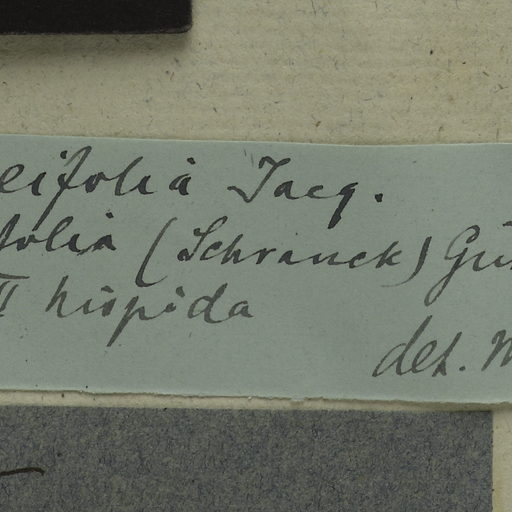 eifolia Jacq.
folia (Schranck) Gü
II hispida
det.